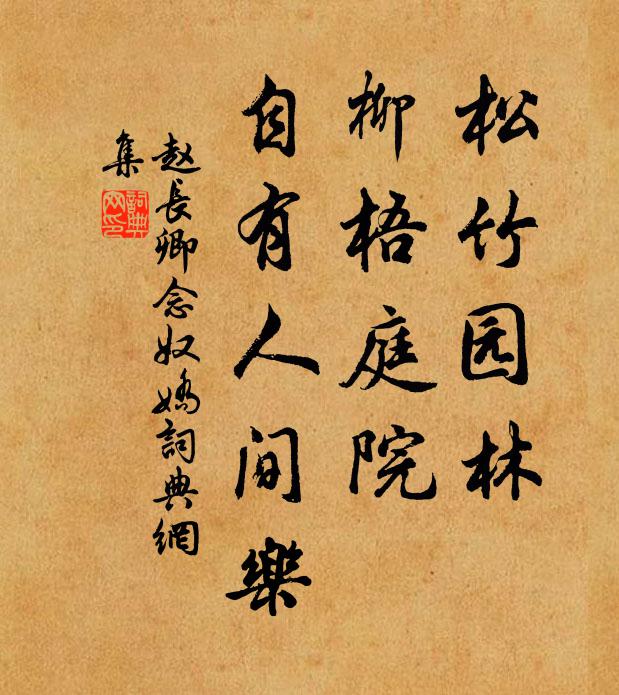 松竹园林
柳梧庭院
自有人间樂
赵長卿念奴嬌詞典網
集
詞典
网印